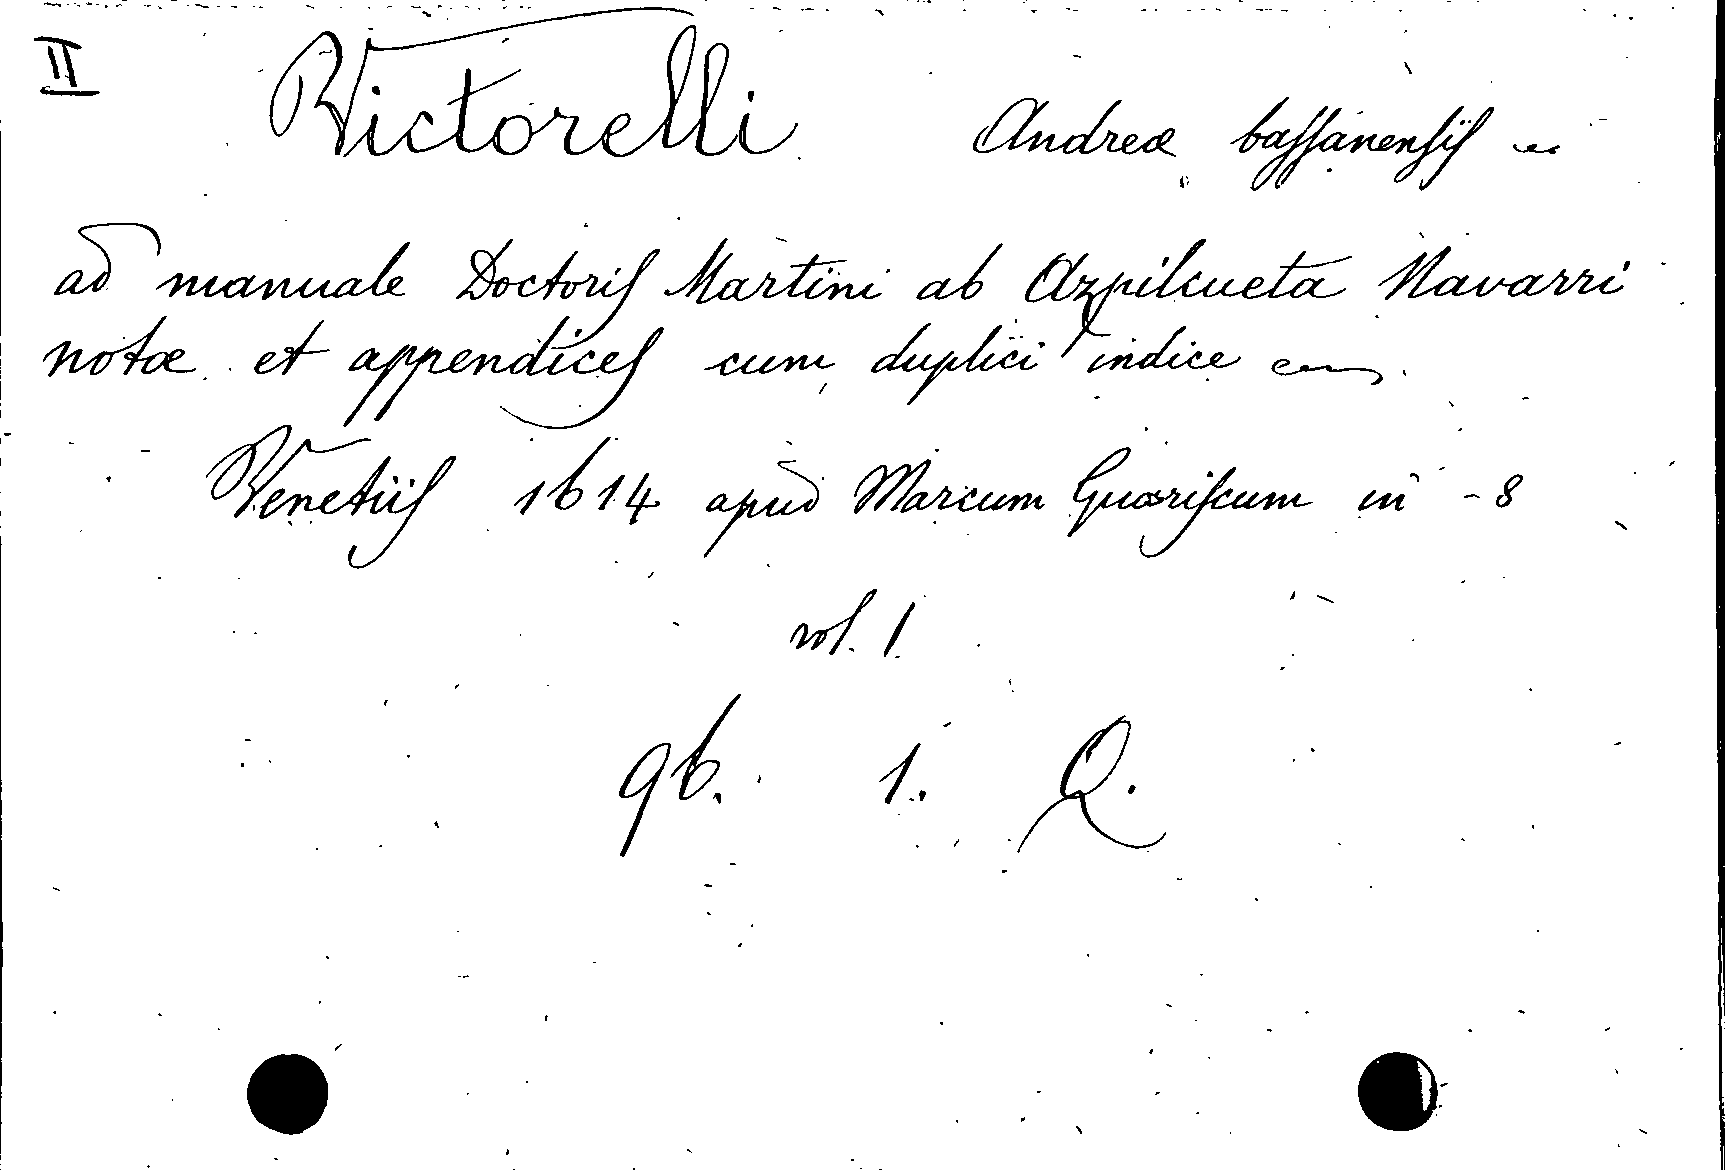 II Victorelli Andreæ bassanensis
ad manuale Doctoris Martini ab Azpilcueta Navarri
notæ et appendices cum duplici indice
Venetiis 1614 apud Marcum Guariscum in - 8
vol. 1
96. 1. Q.